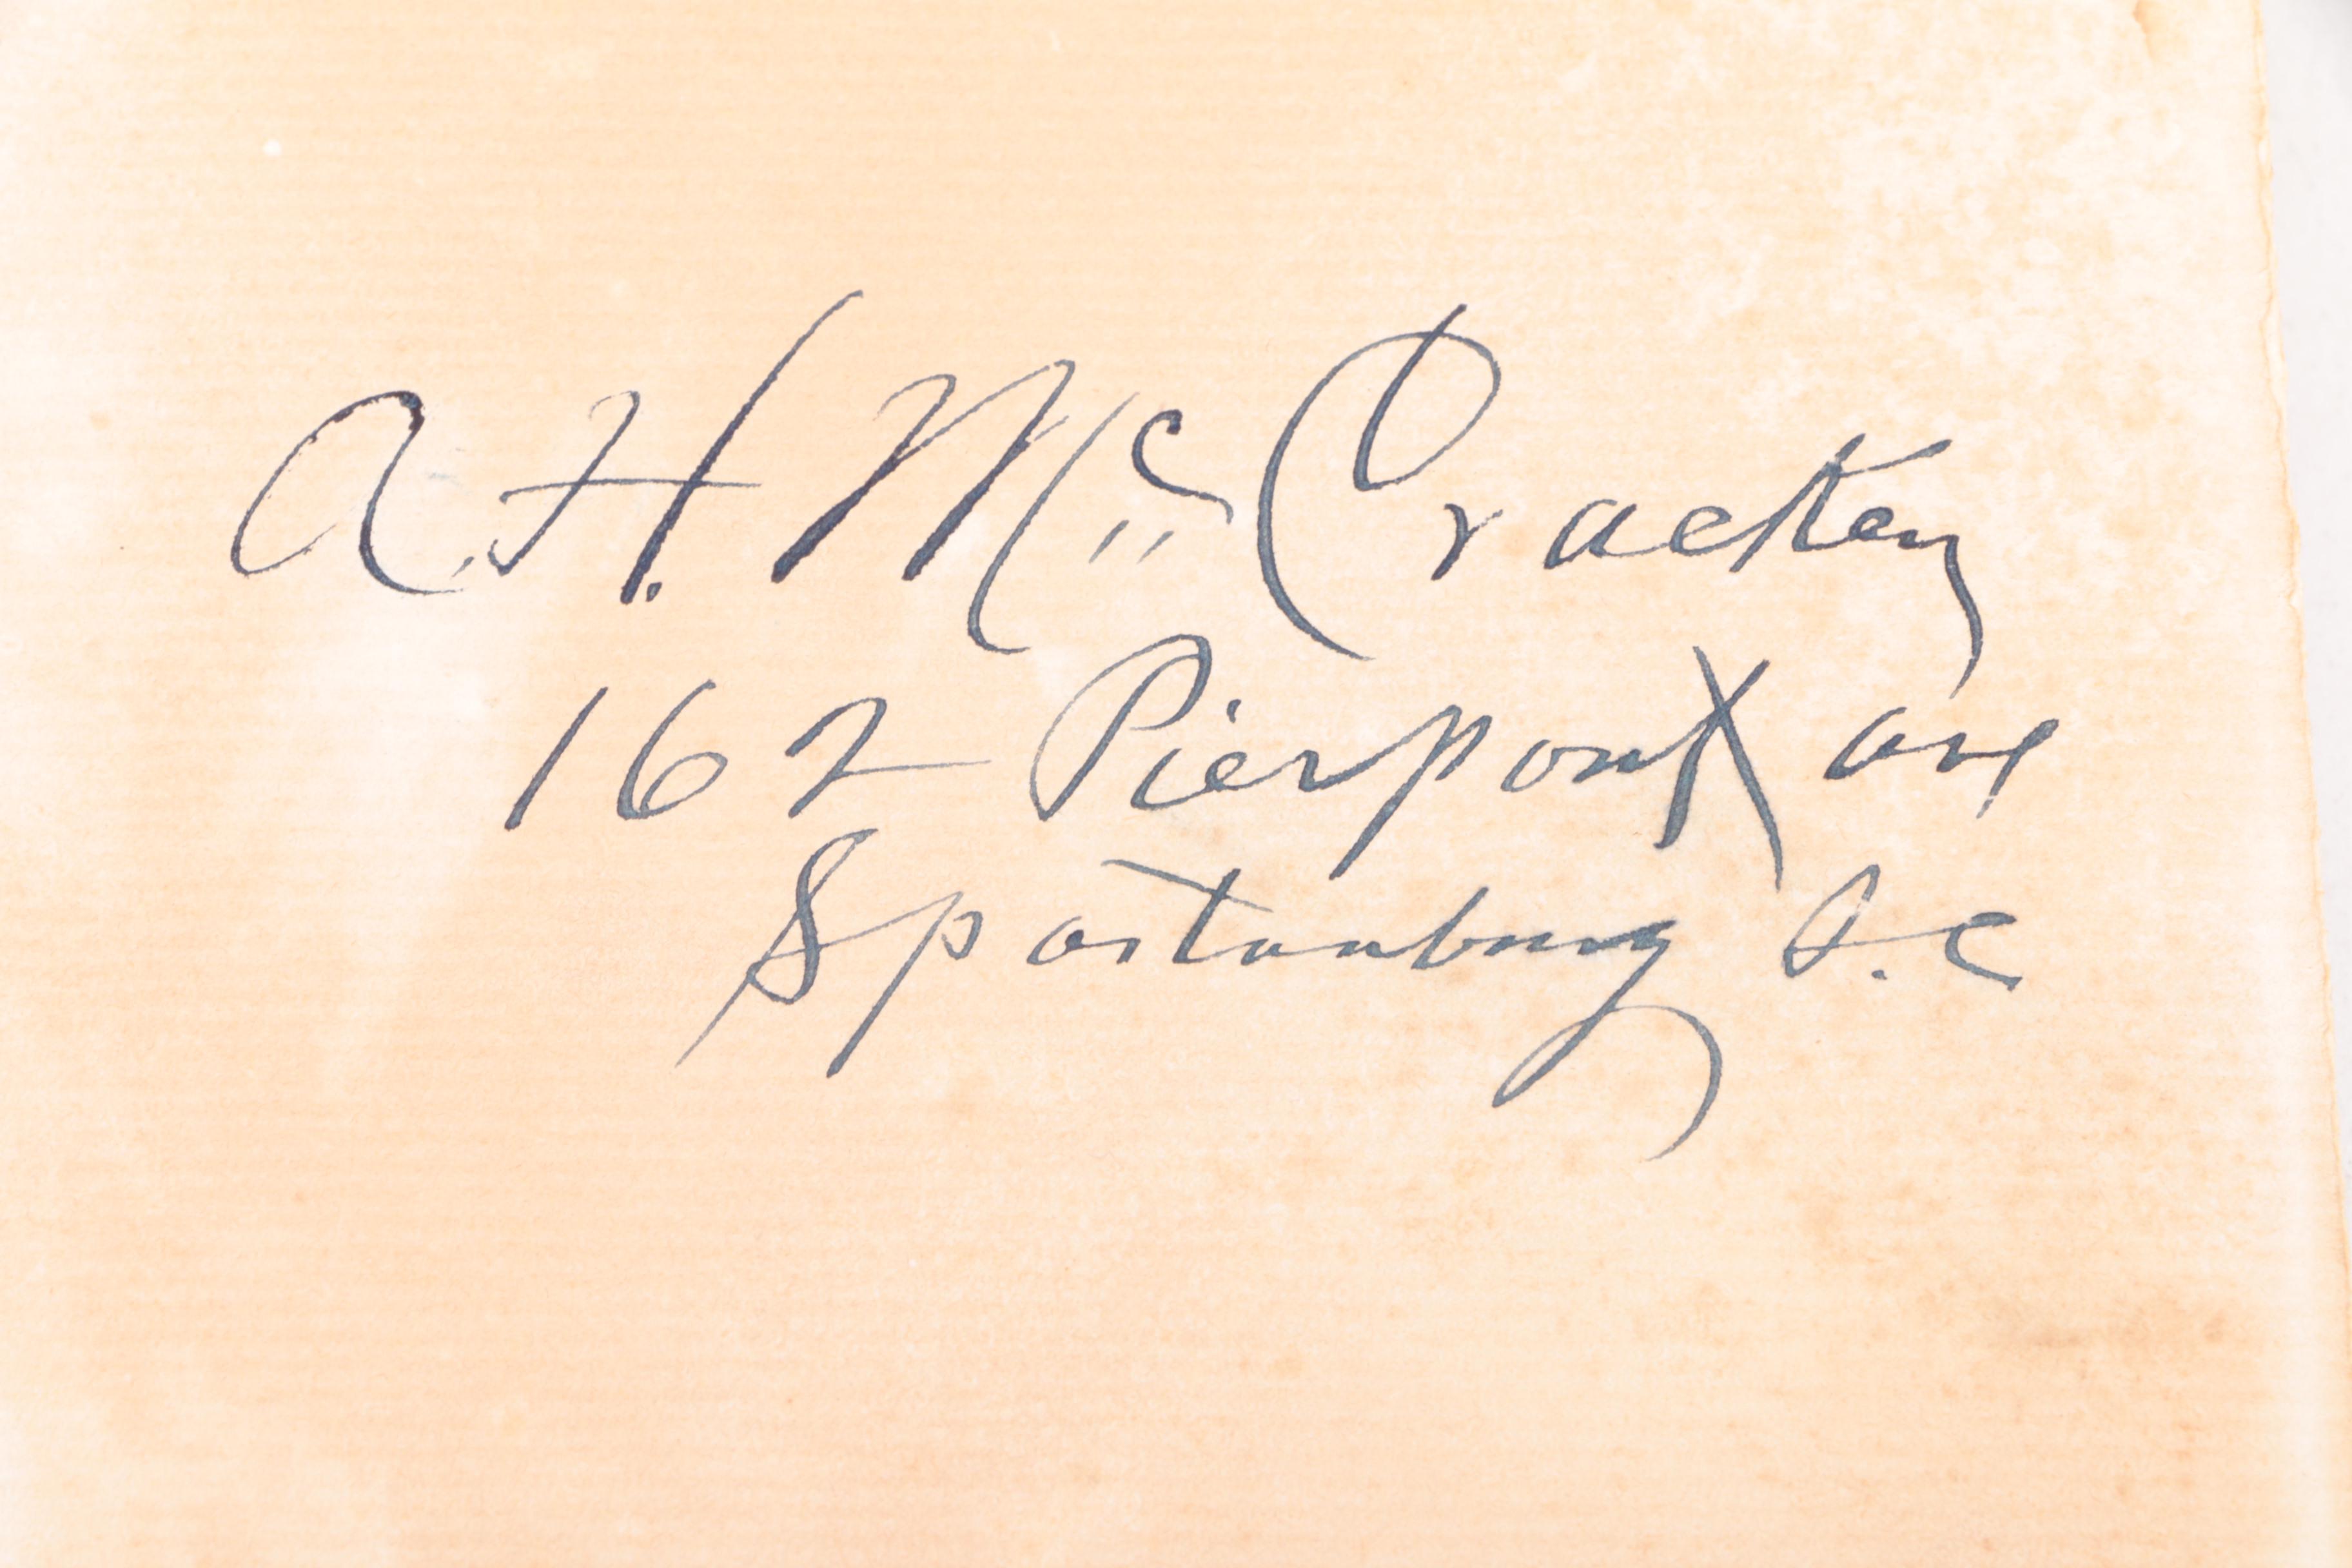 A. H. McCracken
162 Pierpont ave
Spartanburg S.C